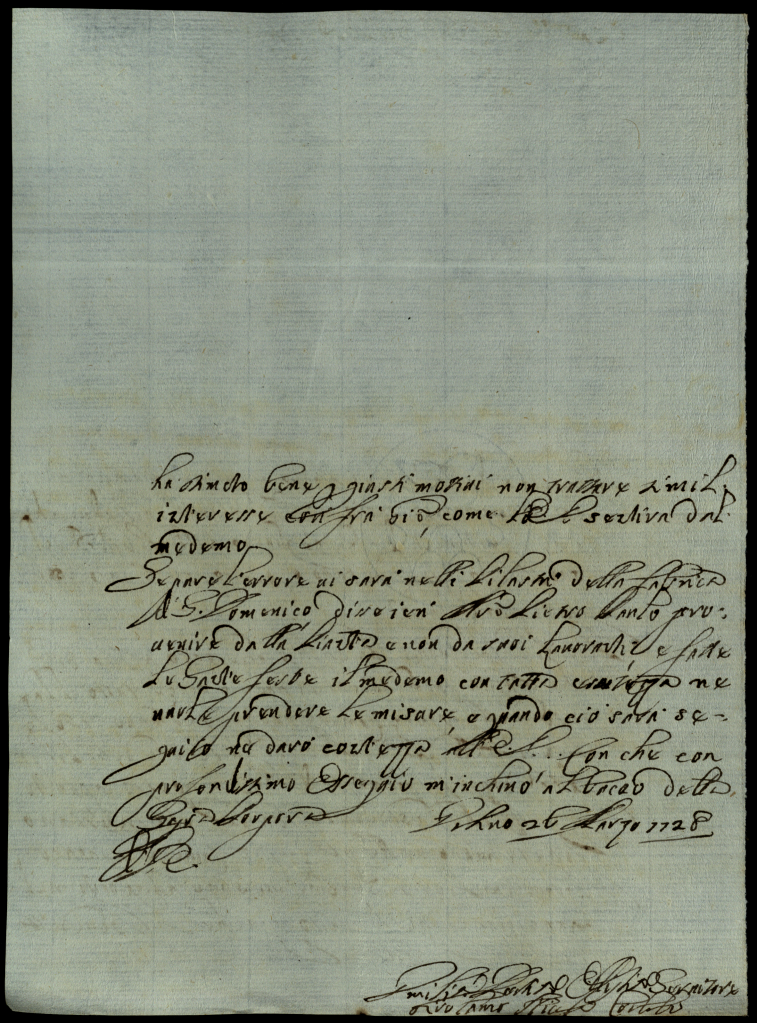 ha stimato bene p giusti motivi non trattare simil
interesse con frà Giō: come V.E. sentira dal
medemo
Se pare l'errore vi sarà nelli Pilastri della fabrica
di S. Domenico dice ien Pietro Paulo pro-
venire dalla Pianta e non da suoi Lavoranti e fatte
le Sante feste il medemo con tutta esatezza ne
vuole prendere le misure e quando ciò sarà se-
guito ne darò contezza all' E.V. Con che con
profondissimo Osseqquio m'inchino al bacio della
Sagra Porpora 26 Marzo 1728
Di V.E.
Servitore